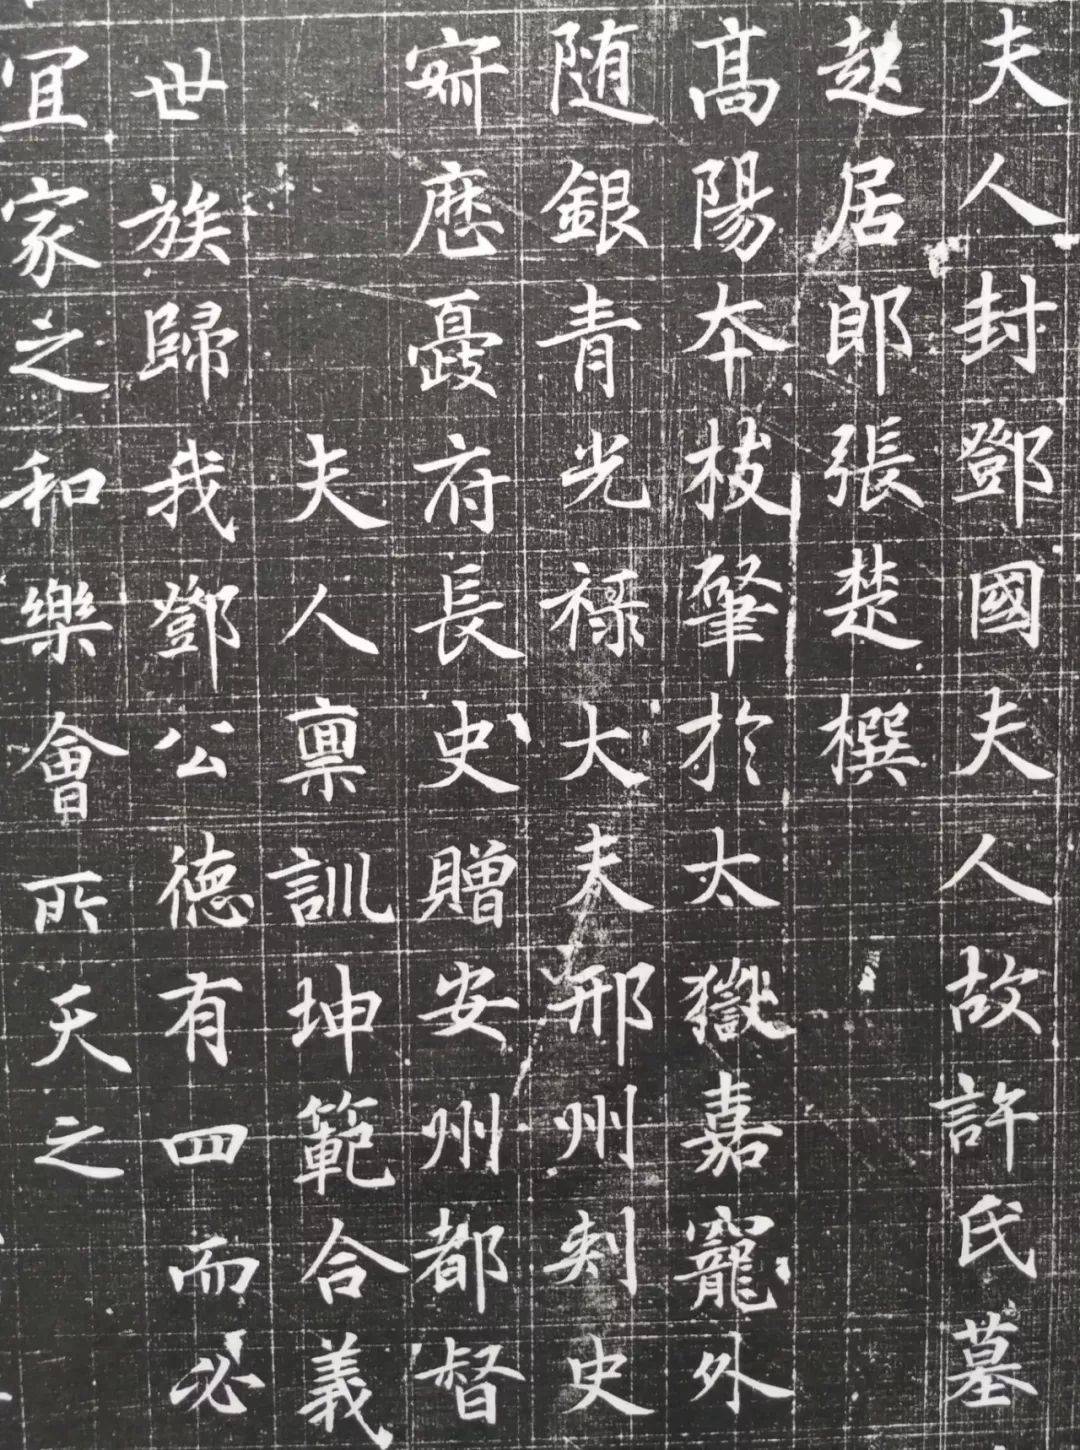 夫人封鄧國夫人故許氏墓
起居郎張楚撰
高陽夲枝肇於太嶽嘉寵外
随銀青光禄大夫邢州刾史
歷憂府長史贈安州都督
夫人禀訓坤範合義
世族歸我鄧公德有四而必
宜家之和樂會所天之